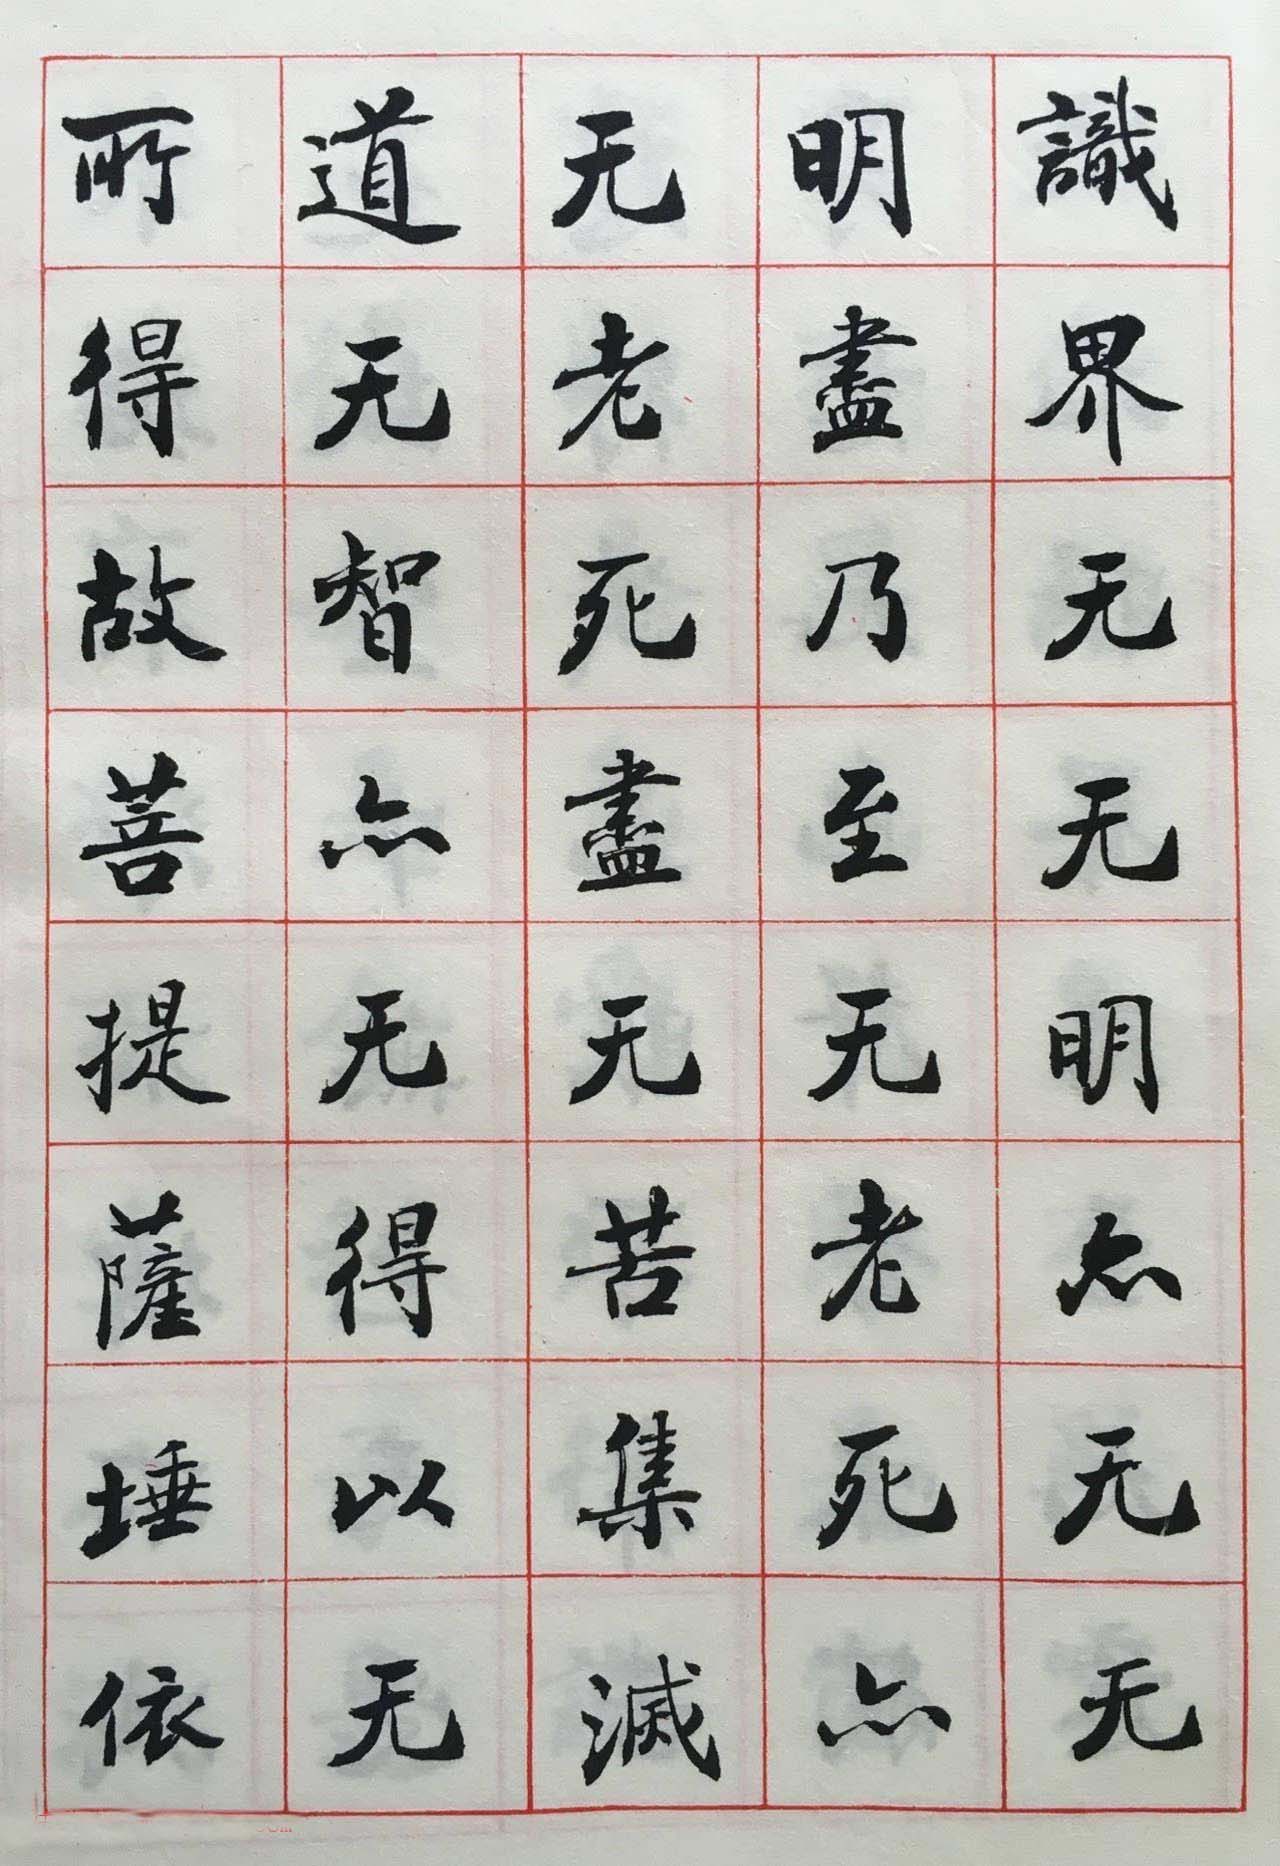 識界无无明亦无无
明盡乃至无老死亦
无老死盡无苦集滅
道无智亦无得以无
所得故菩提薩埵依